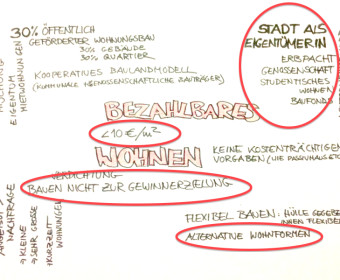 30% ÖFFENTLICH
GEFÖRDERTER WOHNUNGSBAU
30% GEBÄUDE
30% QUARTIER
KOOPERATIVES BAULANDMODELL
(KOMMUNALE + GENOSSENSCHAFTLICHE BAUTRÄGER)
EIGENTUM
MIETWOHNUNGEN
STADT ALS
EIGENTÜMER:IN
ERBPACHT
GENOSSENSCHAFT
STUDENTISCHES
WOHNEN
BAUFONDS
BEZAHLBARES
<10 €/m²
WOHNEN
KEINE KOSTENTRÄCHTIGEN
VORGABEN (WIE PASSIVHAUS ETC.
VERDICHTUNG
BAUEN NICHT ZUR GEWINNERZIELUNG
NACHFRAGE
→ KLEINE
→ SEHR GROSSE
→ KURZZEIT
WOHNUNGEN
FLEXIBEL BAUEN: HÜLLE GEGEBEN
INNEN FLEXIBEL
ALTERNATIVE WOHNFORMEN